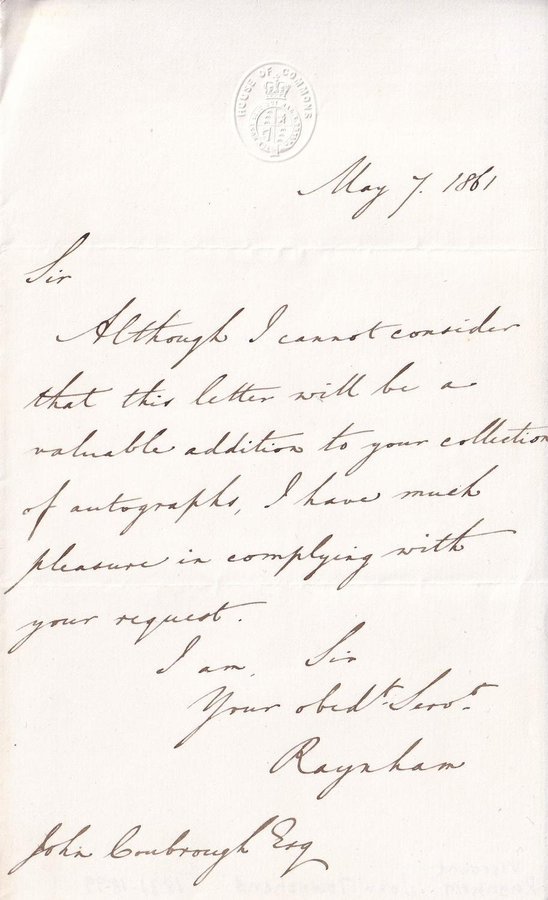 HOUSE OF COMMONS
May 7. 1861
Sir
Although I cannot consider
that this letter will be a
valuable addition to your collection
of autographs, I have much
pleasure in complying with
your request.
I am, Sir
Your obedt. Servt.
Raynham
John Coubrough Esq